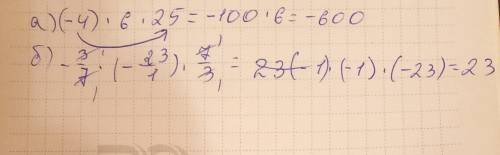 а) (-4) · 6 · 25 = -100 · 6 = -600
б) -3/7 · (-23/1) · 7/3 = 23(-1) · (-1) · (-23) = 23